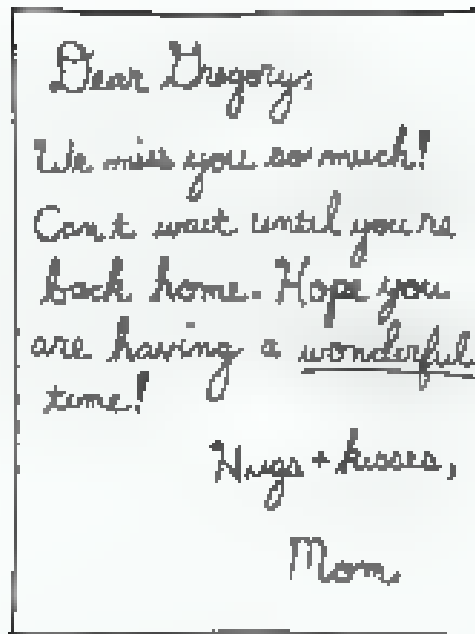 Dear Gregory,
We miss you so much!
Can't wait until you're
back home. Hope you
are having a wonderful
time!
Hugs + kisses,
Mom